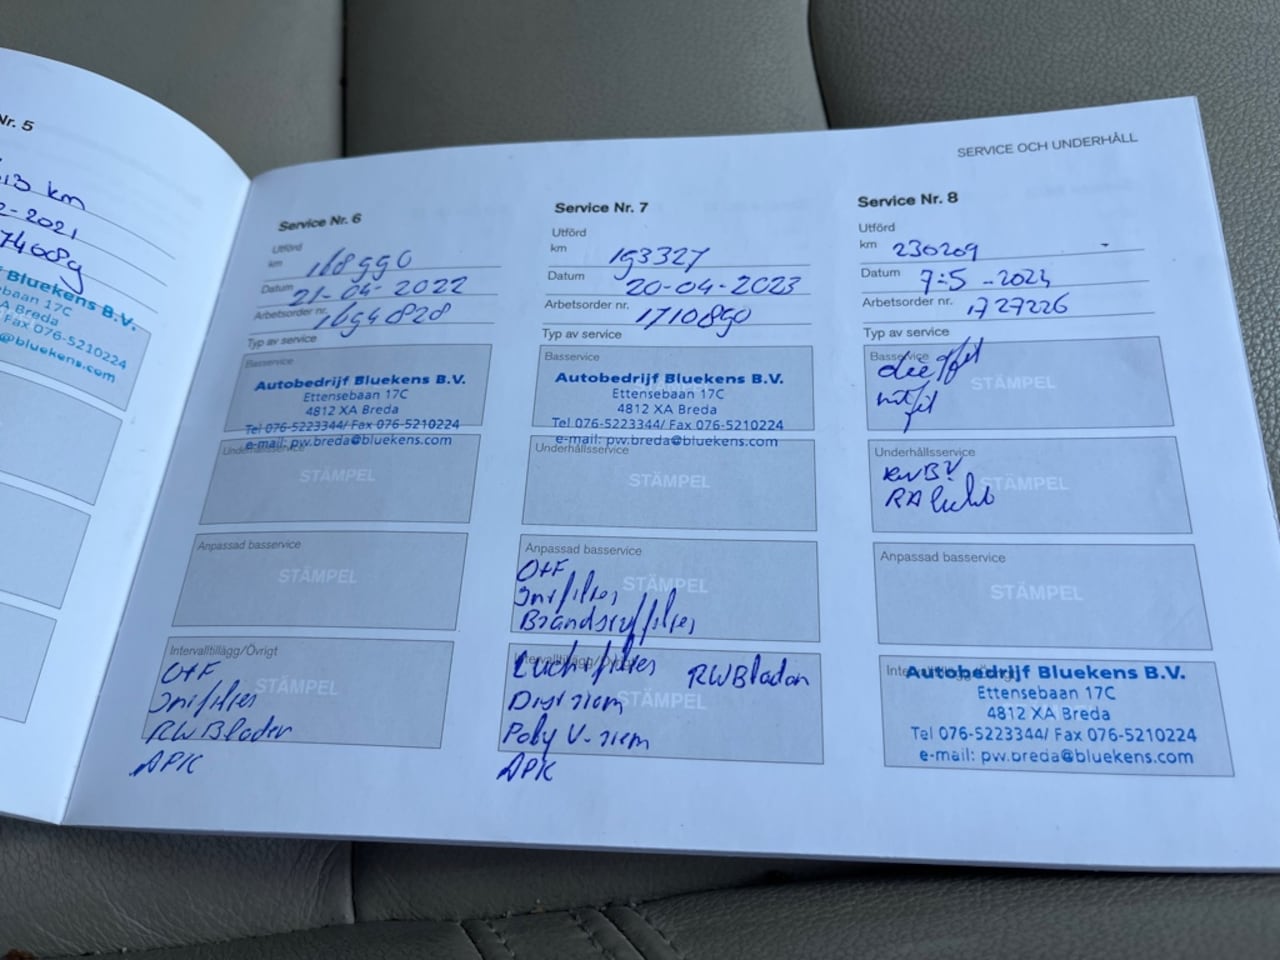 Nr. 5
13 km
2-2021
74089
Bluekens B.V.
ebaan 17C
Breda
Fax 076-5210224
@bluekens.com
SERVICE OCH UNDERHÅLL
Service Nr. 6
Utförd
km 168990
Datum 21-04-2022
Arbetsorder nr. 1694828
Typ av service
Basservice
Autobedrijf Bluekens B.V.
Ettensebaan 17C
4812 XA Breda
Tel 076-5223344/ Fax 076-5210224
e-mail: pw.breda@bluekens.com
Underhållsservice
STÄMPEL
Anpassad basservice
STÄMPEL
Intervalltillägg/Övrigt
STÄMPEL
O+F
Inifilter
RW Bladen
APK
Service Nr. 7
Utförd
km 193327
Datum 20-04-2023
Arbetsorder nr. 1710890
Typ av service
Basservice
Autobedrijf Bluekens B.V.
Ettensebaan 17C
4812 XA Breda
Tel 076-5223344/ Fax 076-5210224
e-mail: pw.breda@bluekens.com
Underhållsservice
STÄMPEL
Anpassad basservice
STÄMPEL
O+F
Inifilter
Brandstoffilter
Intervalltillägg/Övrigt
STÄMPEL
Luchtfilter RWBladen
Dist riem
Poly V-riem
APK
Service Nr. 8
Utförd
km 230209
Datum 7-5-2024
Arbetsorder nr. 1727226
Typ av service
Basservice
STÄMPEL
olie + fil
int fil
Underhållsservice
STÄMPEL
RWBl
Anpassad basservice
STÄMPEL
Autobedrijf Bluekens B.V.
Ettensebaan 17C
4812 XA Breda
Tel 076-5223344/ Fax 076-5210224
e-mail: pw.breda@bluekens.com